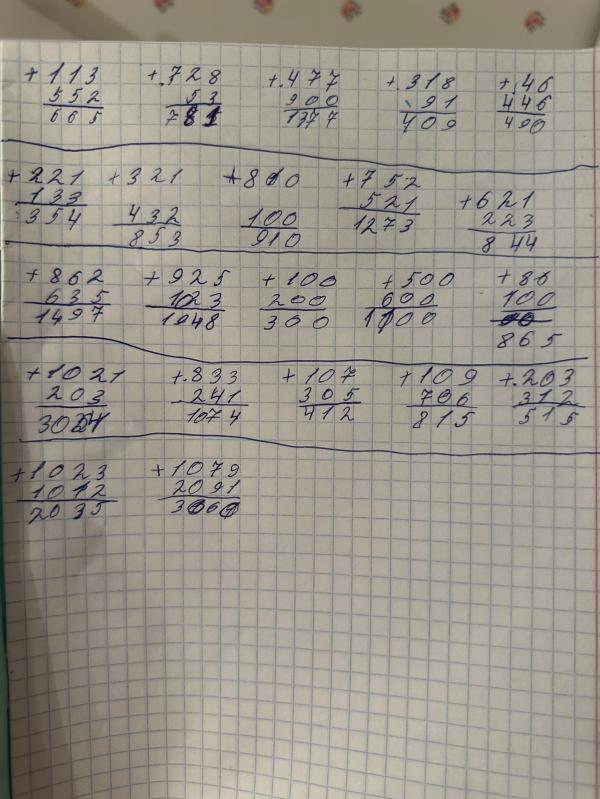 +113 +.728 +.477 +.318 +.46
552 53 900 91 446
665 781 1377 409 490
+221 +321 +800 +752 +621
133 432 100 521 223
354 853 910 1273 844
+862 +925 +100 +500 +86
635 1023 200 600 100
1497 1048 300 1100
865
+1021 +.833 +107 +109 +.203
203 241 305 706 312
1074 412 815 515
+1023 +1079
1012 2091
2035